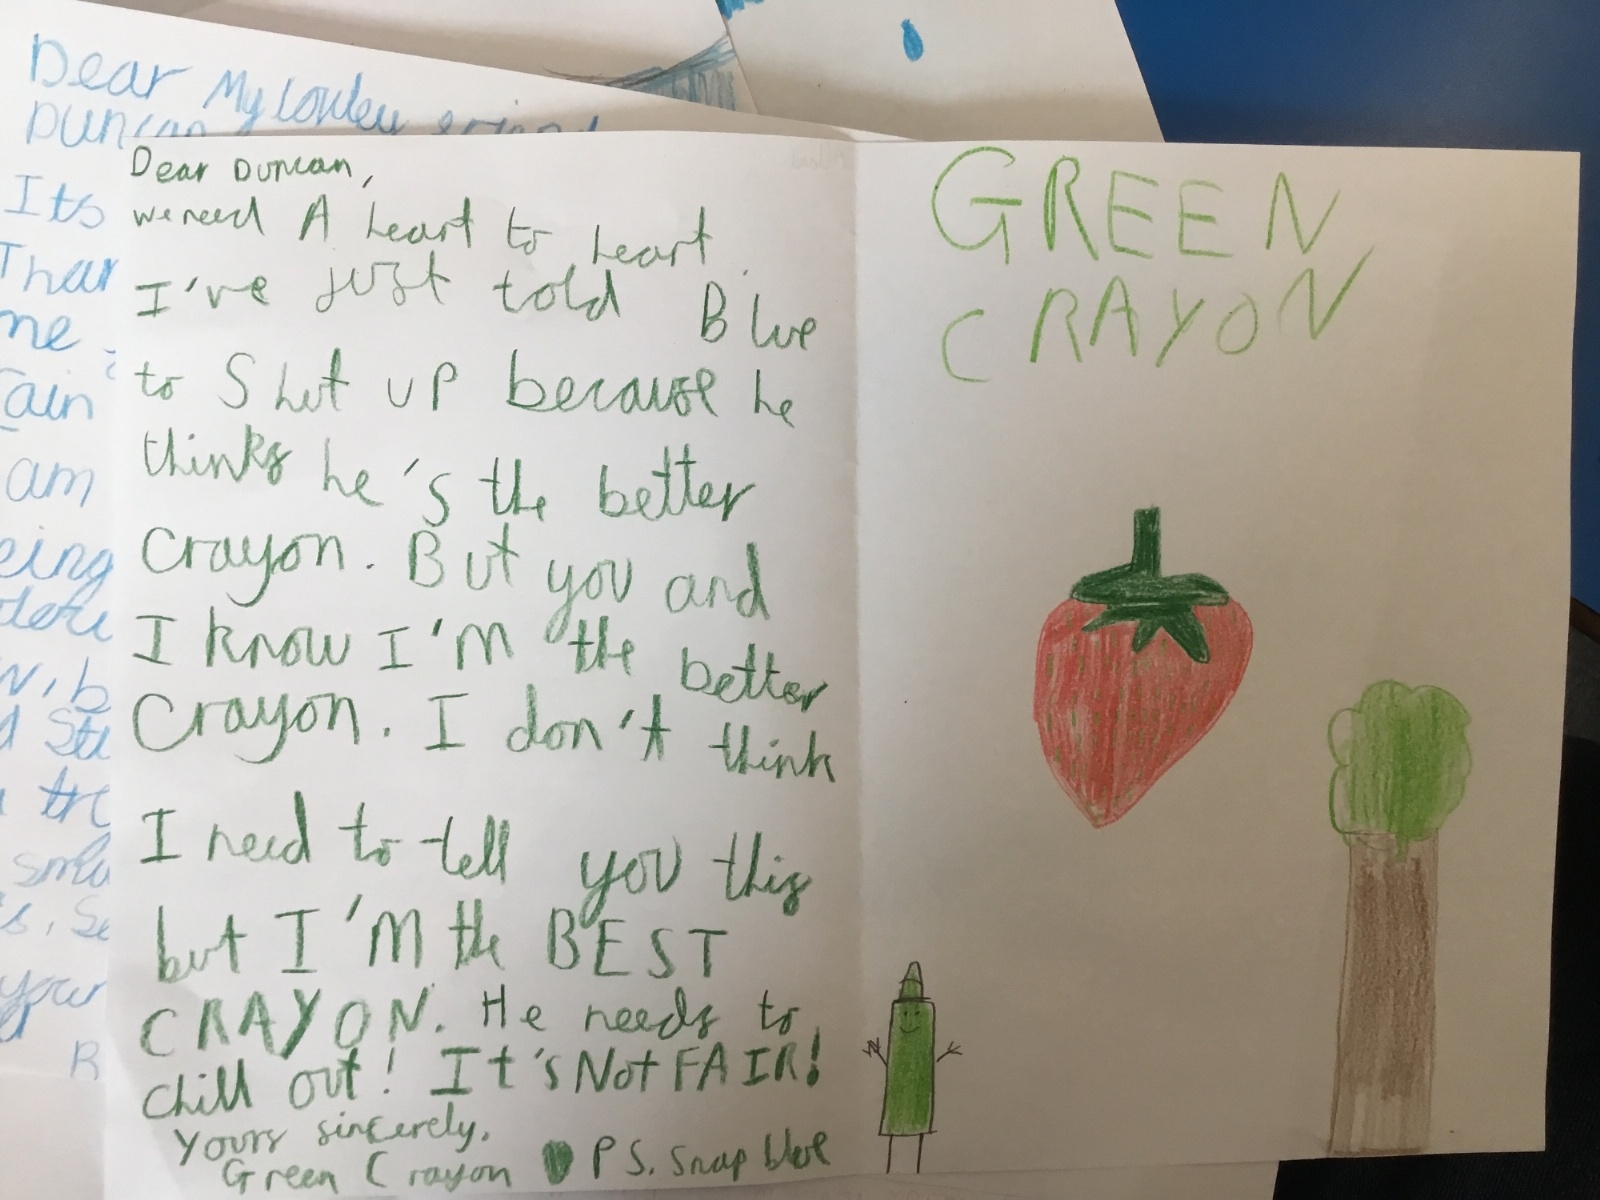 Dear My Lovley
Duncan
Its
me
am
eing
your
R
Dear Duncan,
we need A heart to heart.
I've just told Blue
to Shut up because he
thinks he's the better
Crayon. But you and
I know I'm the better
Crayon. I don't think
I need to tell you this
but I'm the BEST
CRAYON. He needs to
chill out! It's Not FAIR!
Yours sincerely,
Green Crayon PS. Snap blue
GREEN
CRAYON